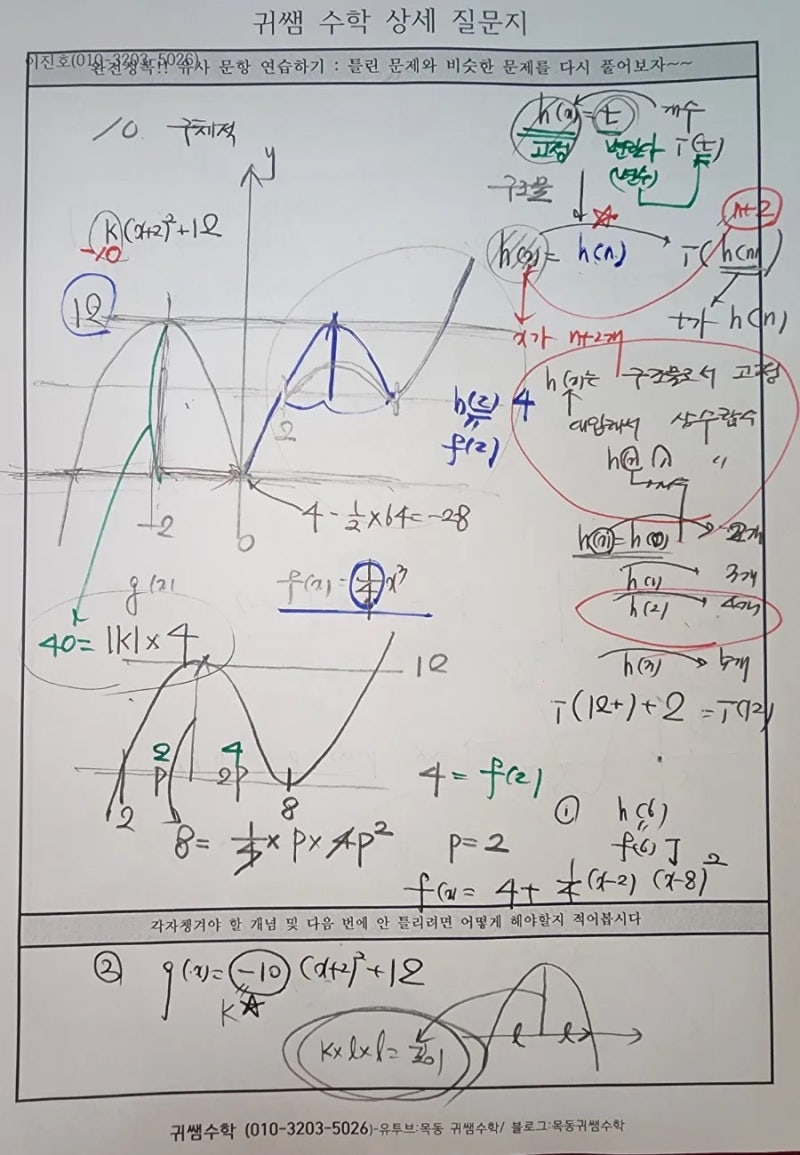 귀쌤 수학 상세 질문지
이진호(010-3203-5026)
완전정복!! 유사 문항 연습하기 : 틀린 문제와 비슷한 문제를 다시 풀어보자~~
10. 구체적
y
h(x) = t 개수
고정 변한다 T(t)
(변수)
구조물
k(x+2)²+12
-10
h(x) = h(n) T(h(n))
n+2
t가 h(n)
12
x가 n+2개
h(x)는 구조물로서 고정
대입해서 상수함수
h(2) 4
f(2)
2
4 - ½ × 64 = -28
-2
0
h(1) 3개
h(2) 4개
h(3) 5개
g(x)
f(x) = ¼x³
40 = |k| × 4
12
T(12+) + 2 = T(12)
2 4
p 2p
2 8
4 = f(2)
① h(6)
f(6)
8 = ¼ × p × 4p² p = 2
f(x) = 4 + ¼(x-2)(x-8)²
각자챙겨야 할 개념 및 다음 번에 안 틀리려면 어떻게 해야할지 적어봅시다
② g(x) = -10(x+2)²+12
k☆
k×l×l = 높이
l l
귀쌤수학 (010-3203-5026)-유투브:목동 귀쌤수학/ 블로그:목동귀쌤수학